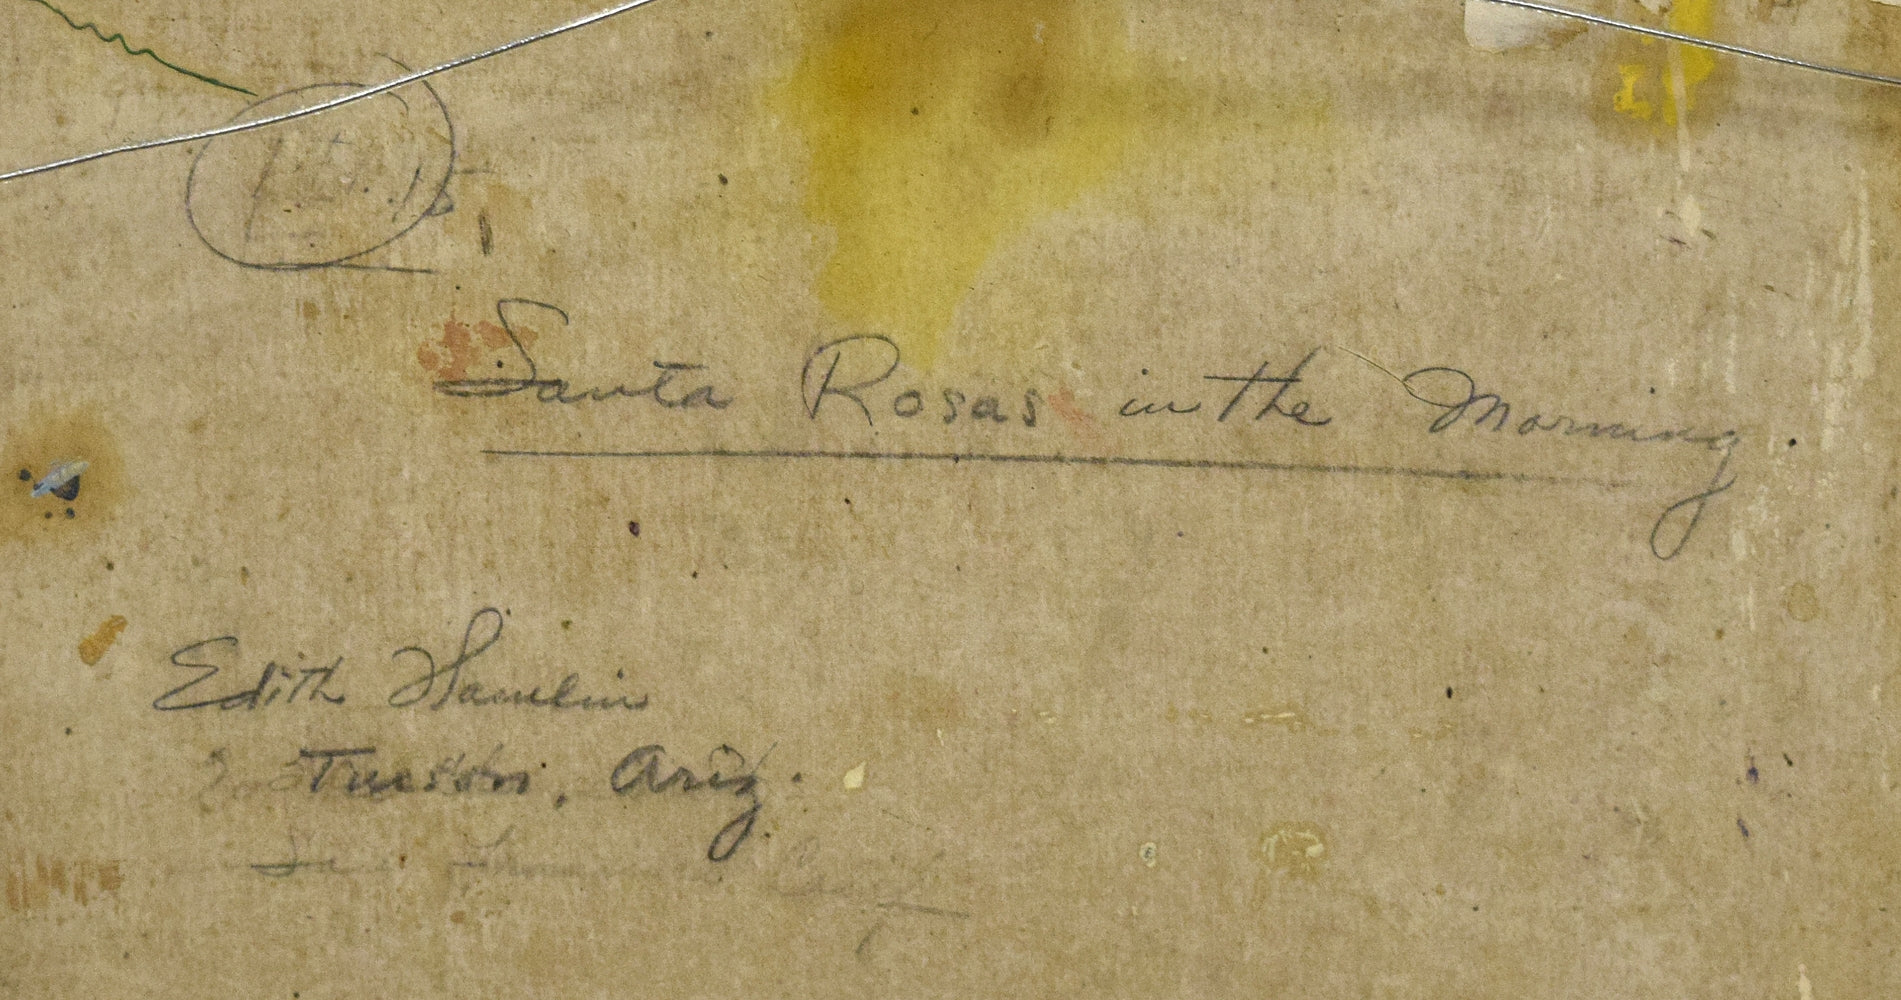 Santa Rosas in the Morning.
Edith Hamlin
Tucson, Ariz.